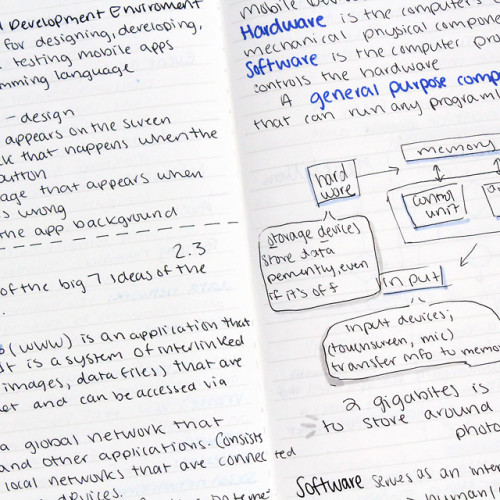 Development Environment
for designing, developing,
testing mobile apps
mming language
- design
appears on the screen
k that happens when the
button
age that appears when
s wrong
the app background
2.3
of the big 7 ideas of the
(WWW) is an application that
It is a system of interlinked
images, data files) that are
et and can be accessed via
a global network that
and other applications. Consists
local networks that are connected
devices.
Hardware is the computer's
mechanical physical compone
Software is the computer pro
controls the hardware
A general purpose comp
that can run any program
memory
hard
ware
control
unit
storage devices
store data
pemently, even
if it's off
input
input devices;
(touchscreen, mic)
transfer info to memor
2 gigabites is
to store around
photo
Software serves as an inter